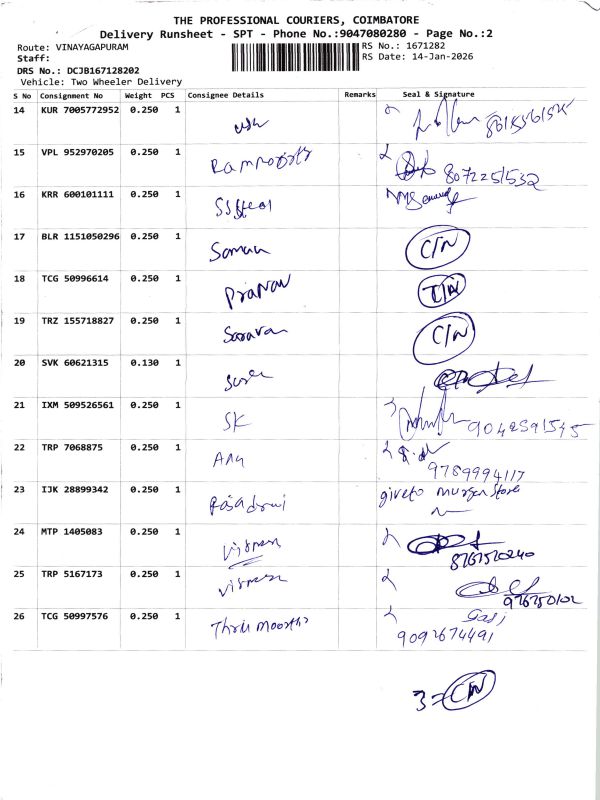 THE PROFESSIONAL COURIERS, COIMBATORE
Delivery Runsheet - SPT - Phone No.:9047080280 - Page No.:2
Route: VINAYAGAPURAM
RS No.: 1671282
Staff:
RS Date: 14-Jan-2026
DRS No.: DCJB167128202
Vehicle: Two Wheeler Delivery
S No Consignment No Weight PCS Consignee Details Remarks Seal & Signature
14 KUR 7005772952 0.250 1
15 VPL 952970205 0.250 1
8072251532
16 KRR 600101111 0.250 1
17 BLR 1151050296 0.250 1 Soman C/N
18 TCG 50996614 0.250 1 Pranav
19 TRZ 155718827 0.250 1 Saravan C/N
20 SVK 60621315 0.130 1
21 IXM 509526561 0.250 1 SK 9042591545
22 TRP 7068875 0.250 1
9789994117
23 IJK 28899342 0.250 1 giveto murgan Store
24 MTP 1405083 0.250 1
25 TRP 5167173 0.250 1
26 TCG 50997576 0.250 1
9092674491
3 = C/N